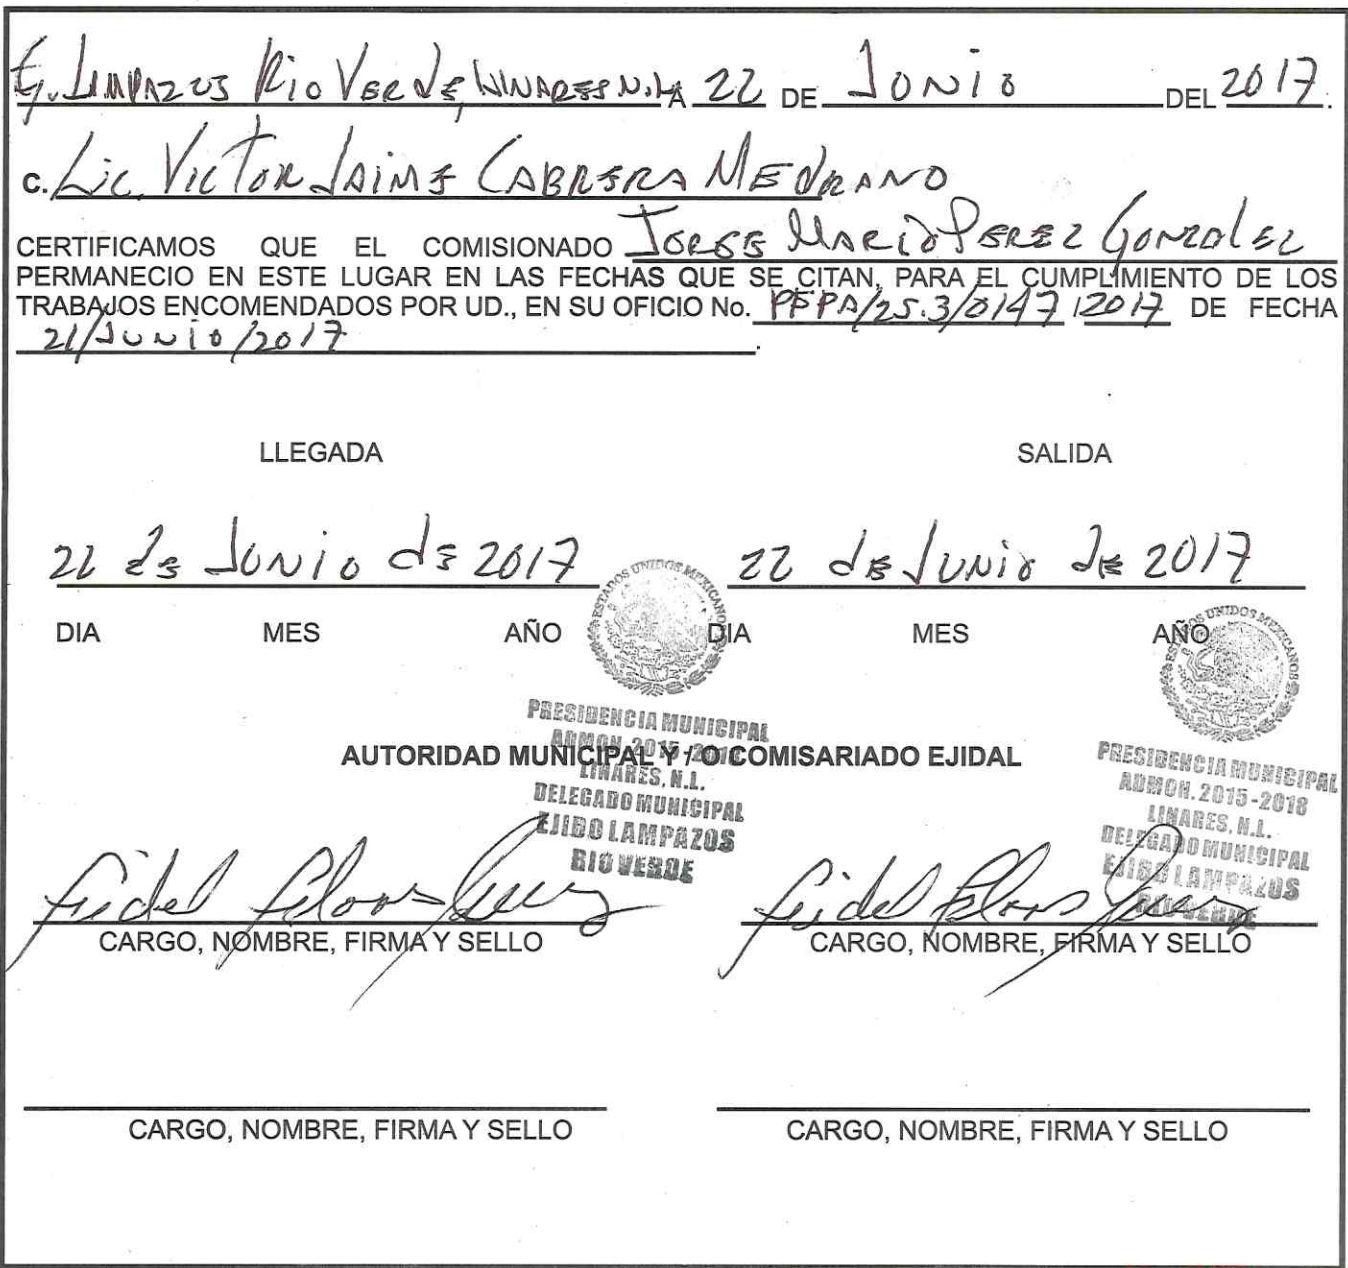 Ej. Lampazos Rio Verde, Linares N.L. A 22 DE Junio DEL 2017.
C. Lic. Victor Jaime Cabrera Medrano
CERTIFICAMOS QUE EL COMISIONADO Jorge Mario Perez Gonzalez
PERMANECIO EN ESTE LUGAR EN LAS FECHAS QUE SE CITAN, PARA EL CUMPLIMIENTO DE LOS
TRABAJOS ENCOMENDADOS POR UD., EN SU OFICIO No. PFPA/25.3/0147/2017 DE FECHA
21/Junio/2017.
LLEGADA SALIDA
22 de Junio de 2017 22 de Junio de 2017
DIA MES AÑO DIA MES AÑO
ESTADOS UNIDOS MEXICANOS
PRESIDENCIA MUNICIPAL
ADMON. 2015-2018
LINARES, N.L.
DELEGADO MUNICIPAL
EJIDO LAMPAZOS
RIO VERDE
ESTADOS UNIDOS MEXICANOS
PRESIDENCIA MUNICIPAL
ADMON. 2015-2018
LINARES, N.L.
DELEGADO MUNICIPAL
EJIDO LAMPAZOS
RIO VERDE
AUTORIDAD MUNICIPAL Y / O COMISARIADO EJIDAL
Fidel
Fidel
CARGO, NOMBRE, FIRMA Y SELLO CARGO, NOMBRE, FIRMA Y SELLO
CARGO, NOMBRE, FIRMA Y SELLO CARGO, NOMBRE, FIRMA Y SELLO